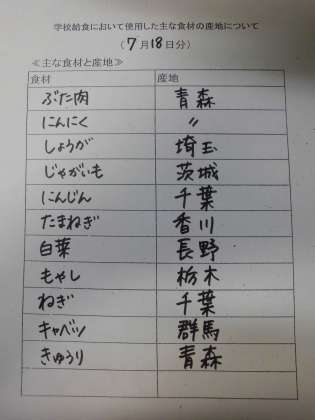 学校給食において使用した主な食材の産地について
(7月18日分)
≪主な食材と産地≫
食材 産地
ぶた肉 青森
にんにく 〃
しょうが 埼玉
じゃがいも 茨城
にんじん 千葉
たまねぎ 香川
白菜 長野
もやし 栃木
ねぎ 千葉
キャベツ 群馬
きゅうり 青森